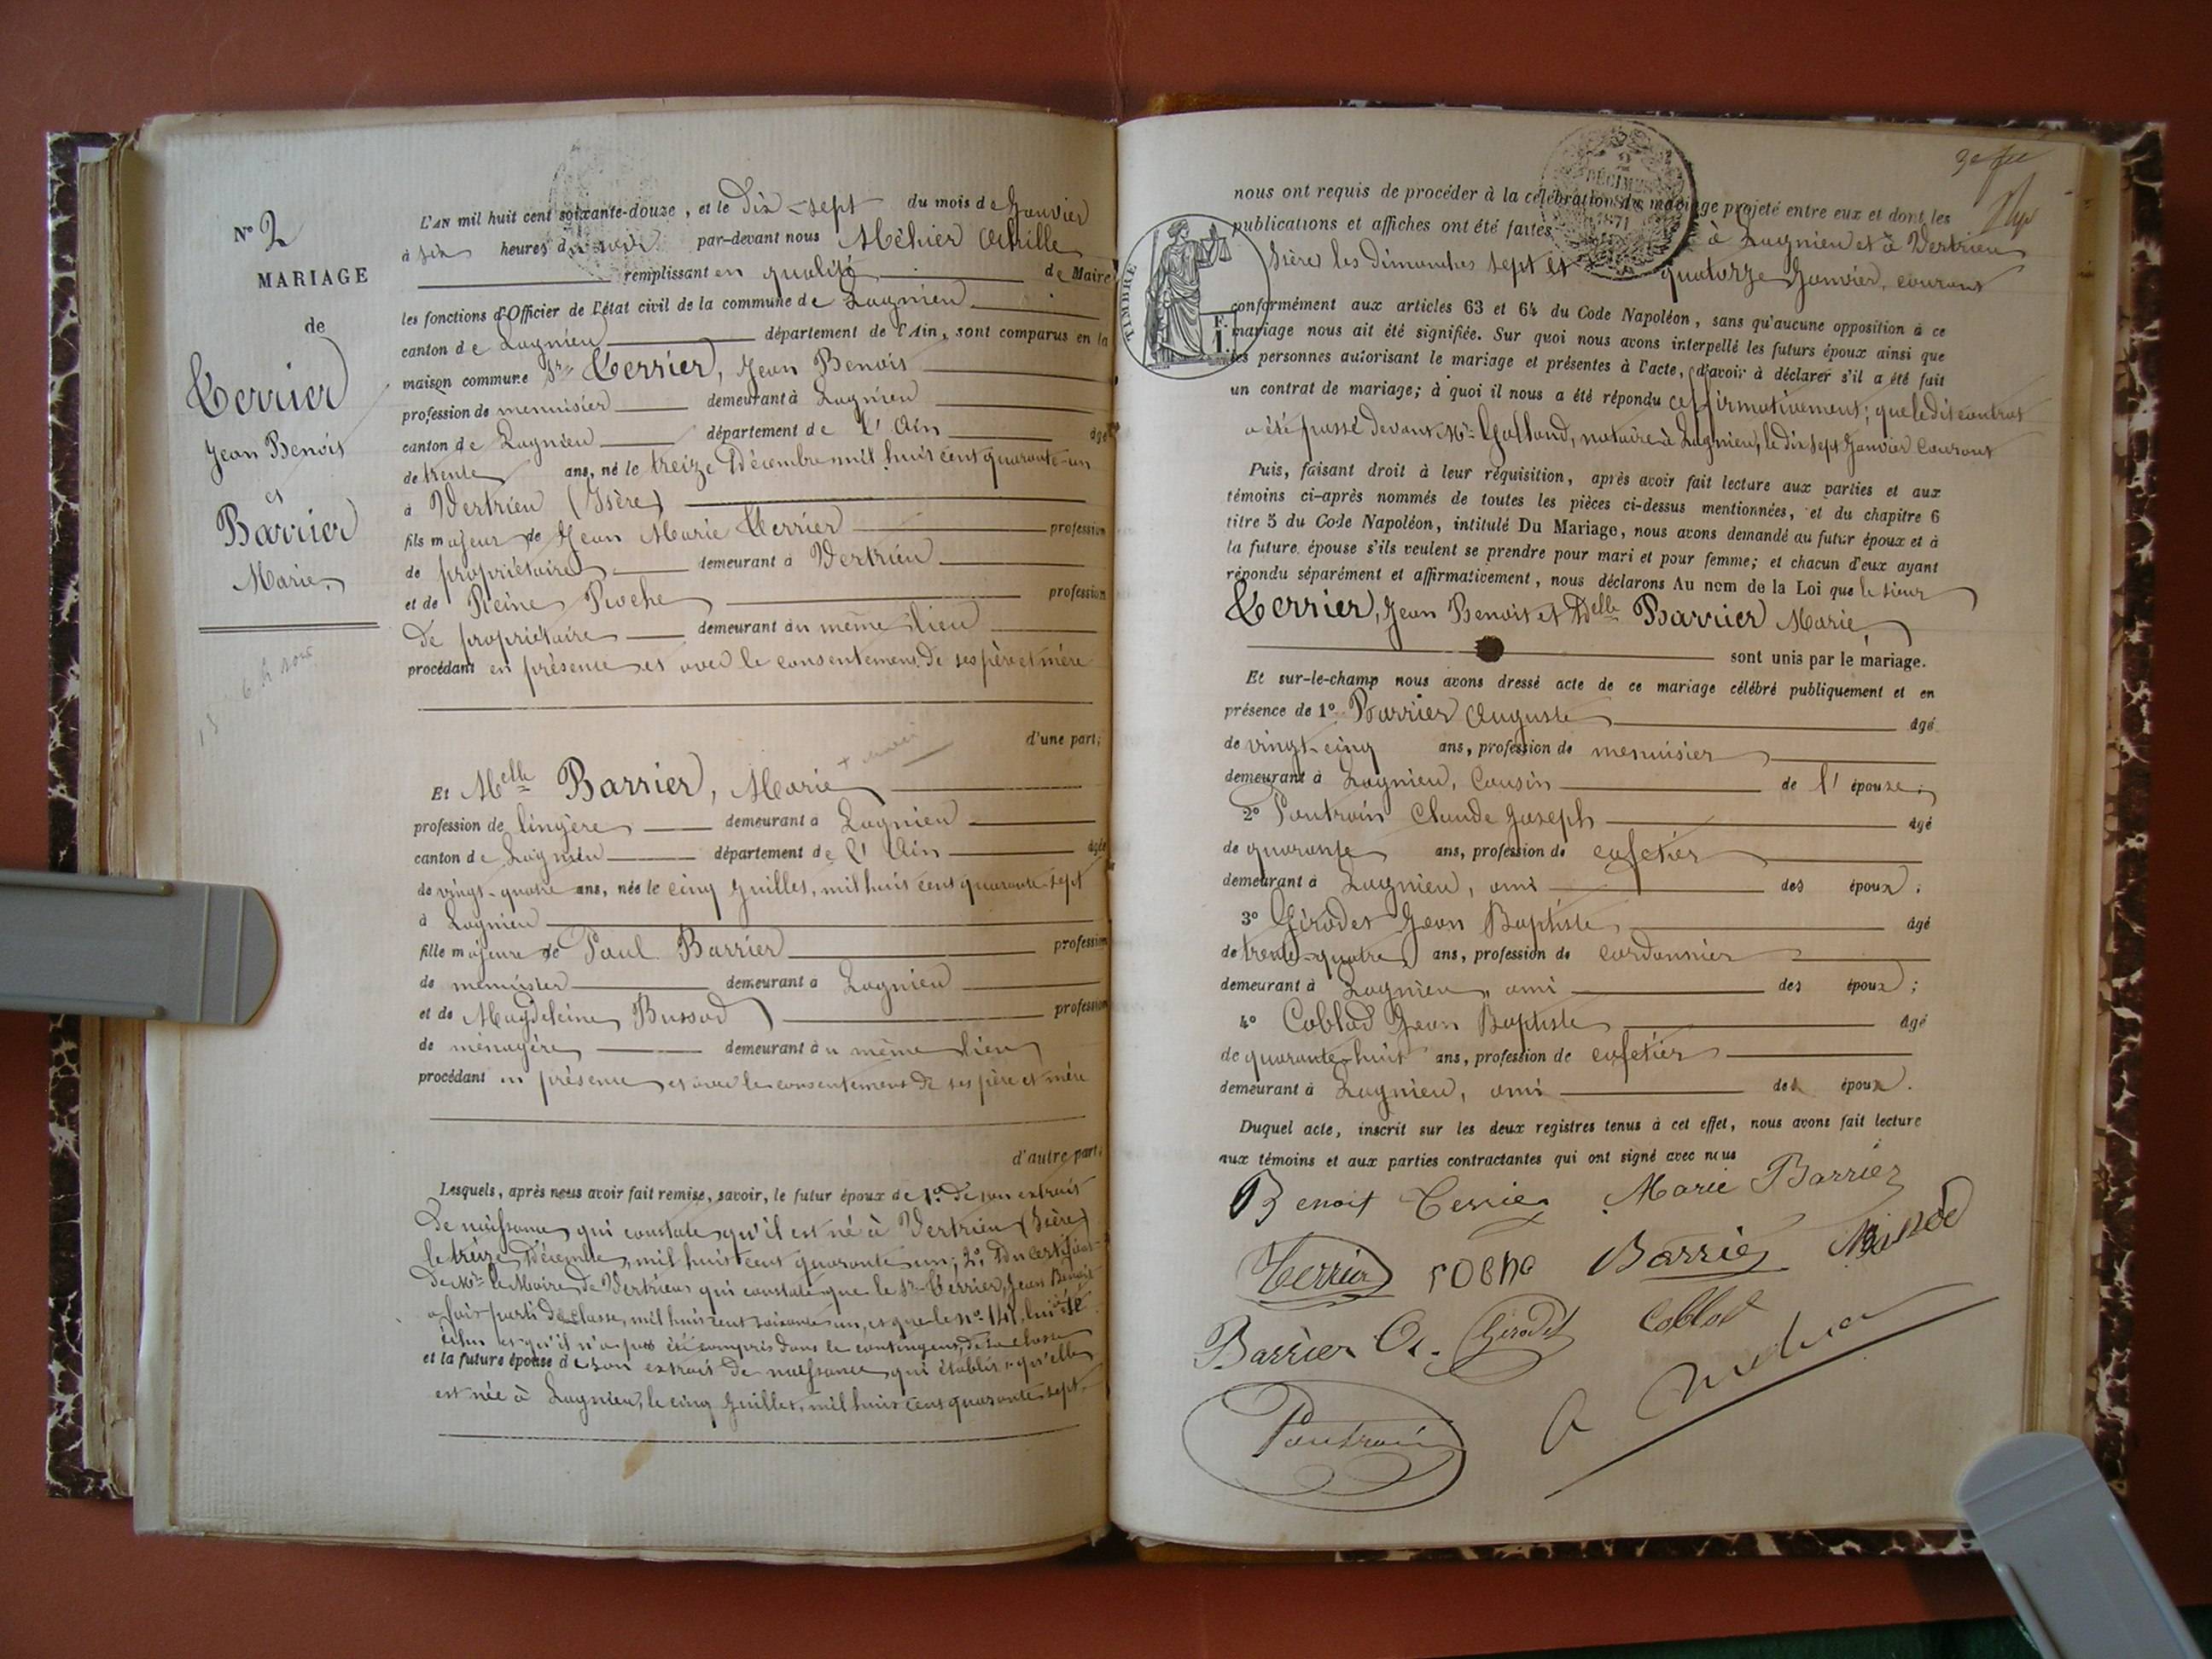 N° 2
MARIAGE
de
Terrier
Jean Benoit
et
Barrier
Marie
6 h soir
L'AN mil huit cent soixante-douze, et le Dix-sept du mois de Janvier
à six heures du soir par-devant nous Méhier Achille
remplissant en qualité de Maire
les fonctions d'Officier de l'état civil de la commune de Lagnieu
canton de Lagnieu département de l'Ain, sont comparus en la
maison commune Sr Terrier, Jean Benoit
profession de menuisier demeurant à Lagnieu
canton de Lagnieu département de l'Ain âgé
de trente ans, né le treize Décembre mil huit cent quarante-un
à Vertrieu (Isère)
fils majeur de Jean Marie Terrier profession
de propriétaire demeurant à Vertrieu
et de Reine Roche profession
de propriétaire demeurant au même lieu
procédant en présence et avec le consentement de ses père et mère
d'une part;
Et Melle Barrier, Marie
profession de lingère demeurant à Lagnieu
canton de Lagnieu département de l'Ain âgée
de vingt-quatre ans, née le cinq Juillet, mil huit cent quarante-sept
à Lagnieu
fille majeure de Paul Barrier profession
de menuisier demeurant à Lagnieu
et de Magdeleine Bussod profession
de ménagère demeurant au même lieu
procédant en présence et avec le consentement de ses père et mère
d'autre part;
Lesquels, après nous avoir fait remise, savoir, le futur époux de 1° de son extrait
de naissance qui constate qu'il est né à Vertrieu (Isère)
le treize Décembre, mil huit cent quarante un; 2° du certificat
de Mr le Maire de Vertrieu qui constate que le Sr Terrier, Jean Benoit
a fait parti de classe, mil huit cent soixante un, et que le n° 141, lui a été
échu et qu'il n'a pas été compris dans le contingent de sa classe
et la future épouse de son extrait de naissance qui établit qu'elle
est née à Lagnieu, le cinq Juillet, mil huit cent quarante sept.
nous ont requis de procéder à la célébration du mariage projeté entre eux et dont les
publications et affiches ont été faites à Lagnieu et à Vertrieu
Isère les dimanches sept et quatorze Janvier, courant
TIMBRE
2
DÉCIMES
1871
conformément aux articles 63 et 64 du Code Napoléon, sans qu'aucune opposition à ce
mariage nous ait été signifiée. Sur quoi nous avons interpellé les futurs époux ainsi que
les personnes autorisant le mariage et présentes à l'acte, d'avoir à déclarer s'il a été fait
un contrat de mariage; à quoi il nous a été répondu affirmativement; que le dit contrat
a été passé devant Me Golland, notaire à Lagnieu, le dix sept Janvier courant
Puis, faisant droit à leur réquisition, après avoir fait lecture aux parties et aux
témoins ci-après nommés de toutes les pièces ci-dessus mentionnées, et du chapitre 6
titre 5 du Code Napoléon, intitulé Du Mariage, nous avons demandé au futur époux et à
la future épouse s'ils veulent se prendre pour mari et pour femme; et chacun d'eux ayant
répondu séparément et affirmativement, nous déclarons Au nom de la Loi que le sieur
Terrier, Jean Benoit et Delle Barrier Marie,
sont unis par le mariage.
Et sur-le-champ nous avons dressé acte de ce mariage célébré publiquement et en
présence de 1° Barrier Auguste âgé
de vingt-cinq ans, profession de menuisier
demeurant à Lagnieu, Cousin de l'épouse;
2° Poutrain Claude Joseph âgé
de quarante ans, profession de cafetier
demeurant à Lagnieu, ami des époux;
3° Gérodet Jean Baptiste âgé
de trente-quatre ans, profession de cordonnier
demeurant à Lagnieu, ami des époux;
4° Coblod Jean Baptiste âgé
de quarante-huit ans, profession de cafetier
demeurant à Lagnieu, ami des époux.
Duquel acte, inscrit sur les deux registres tenus à cet effet, nous avons fait lecture
aux témoins et aux parties contractantes qui ont signé avec nous
Benoit Terrier Marie Barrier
Terrier roche Barrier
Barrier A. Gérodet Coblod
Poutrain